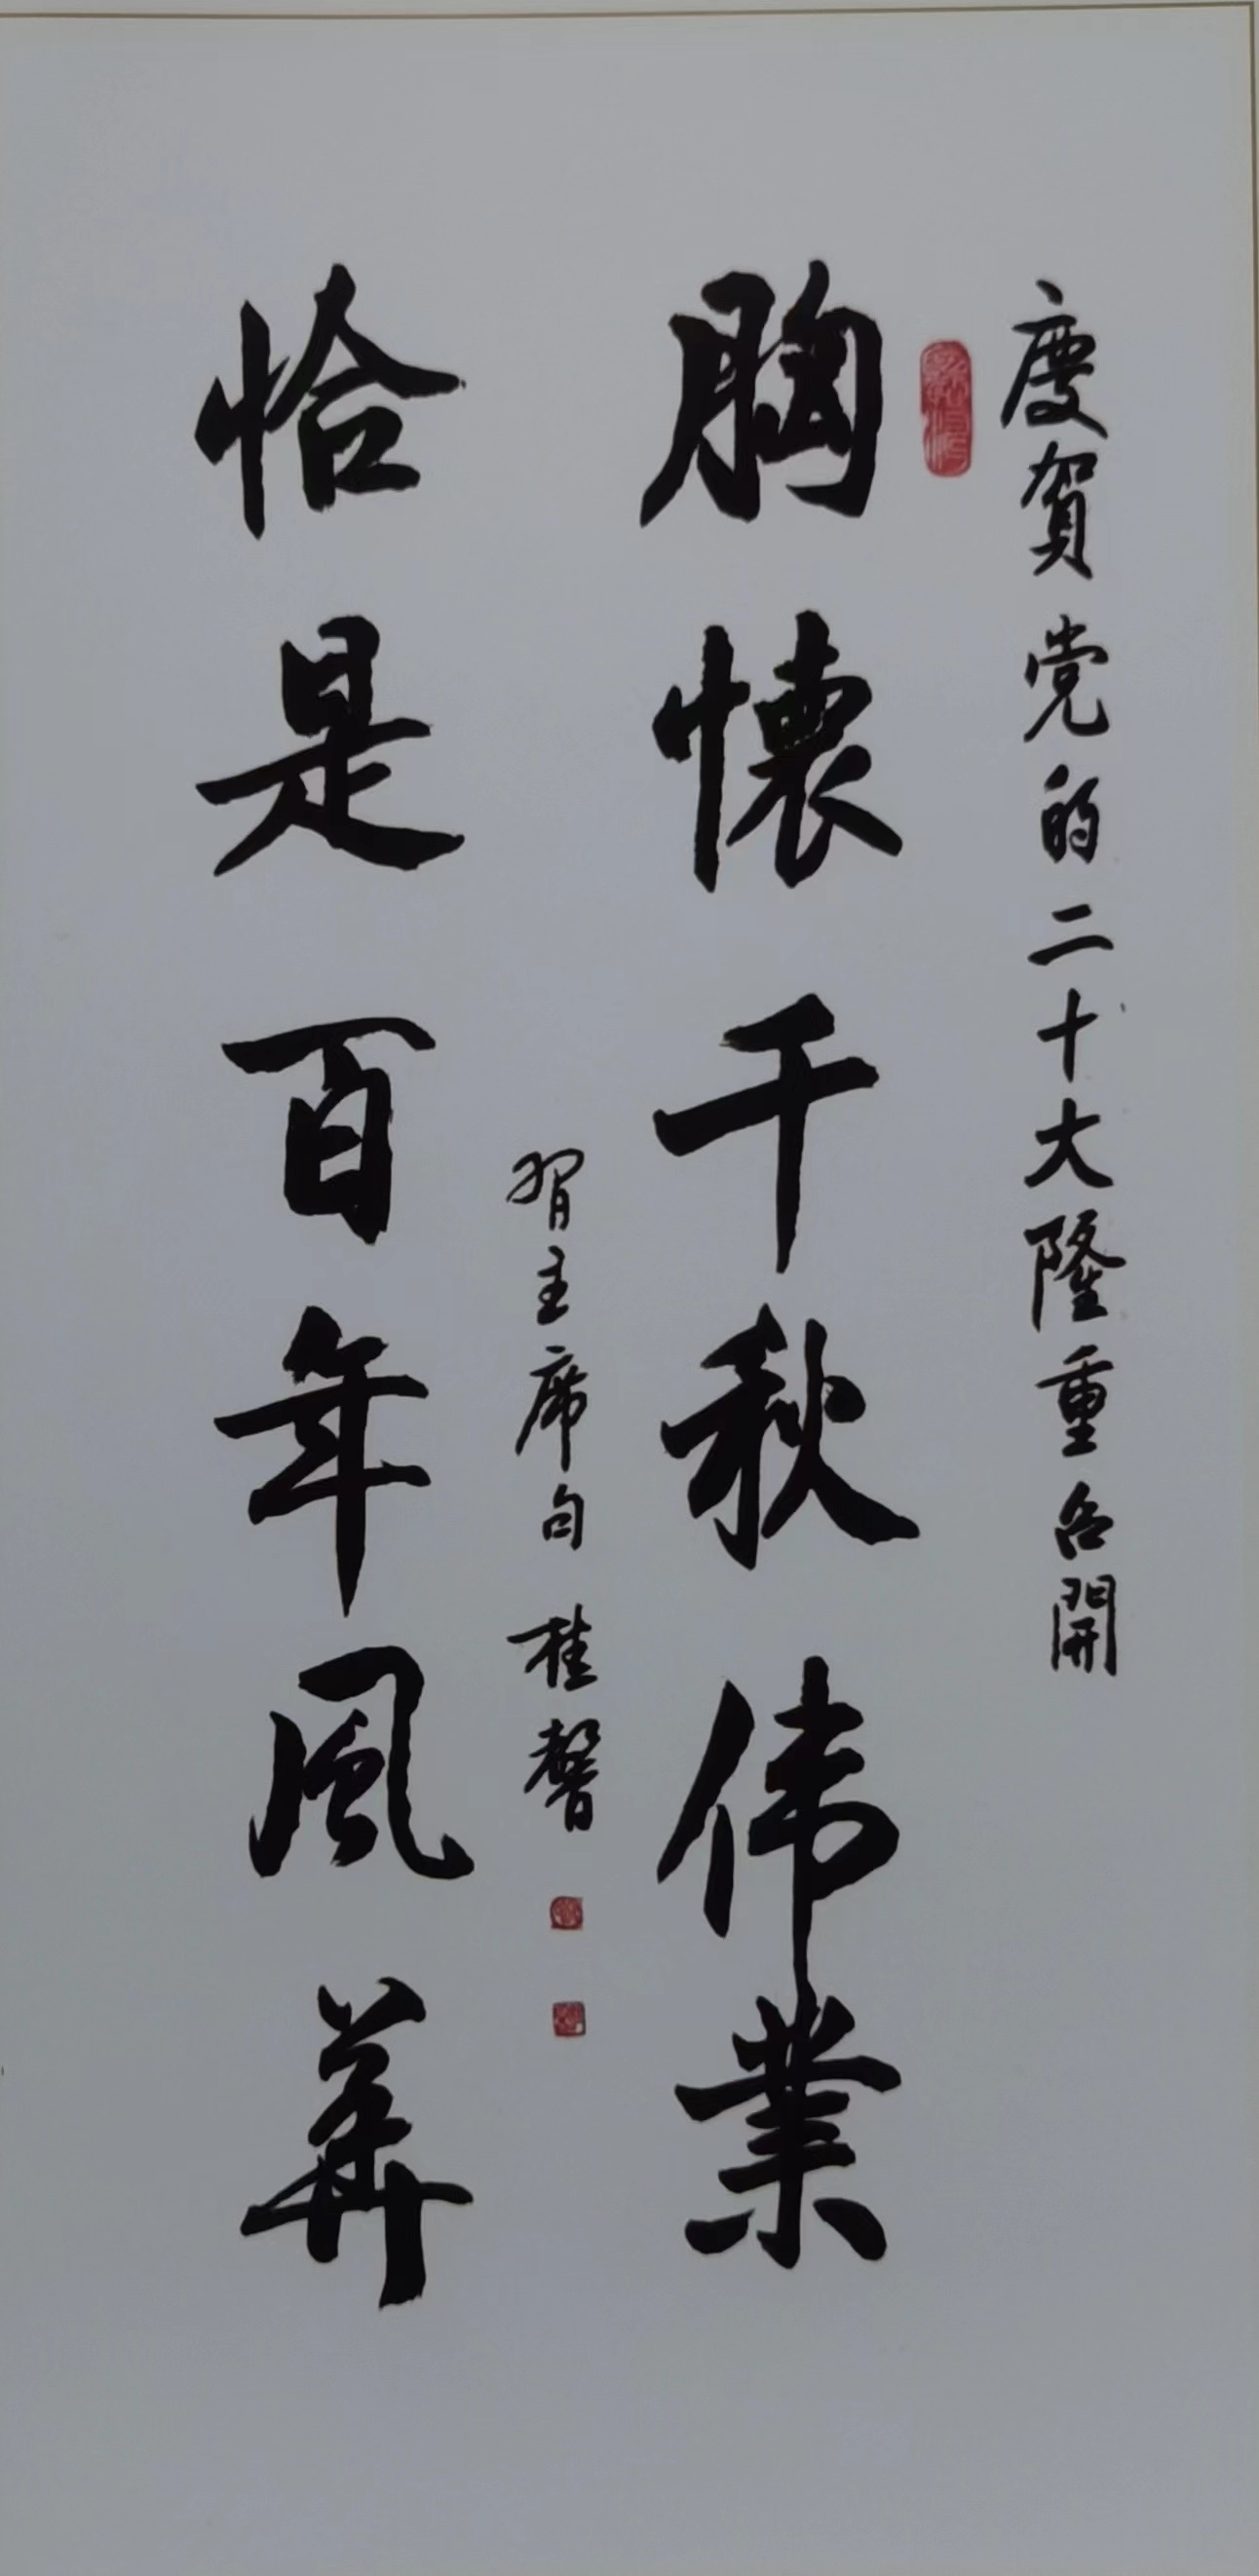 慶賀党的二十大隆重召開
胸懷千秋伟業
習主席句 桂馨
恰是百年風華